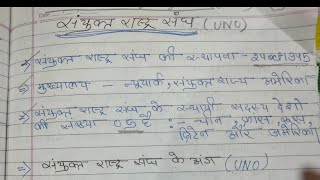 संयुक्त राष्ट्र संघ (UNO)
=> संयुक्त राष्ट्र संघ की स्थापना - 24 अक्टू 1945
=> मुख्यालय - न्यूयार्क, संयुक्त राज्य अमेरिका
=> संयुक्त राष्ट्र संघ के स्थायी सदस्य देशो
की संख्या 05 है :- चीन, फ्रांस, रूस,
ब्रिटेन और अमेरिका
=> संयुक्त राष्ट्र संघ के अंग (UNO)